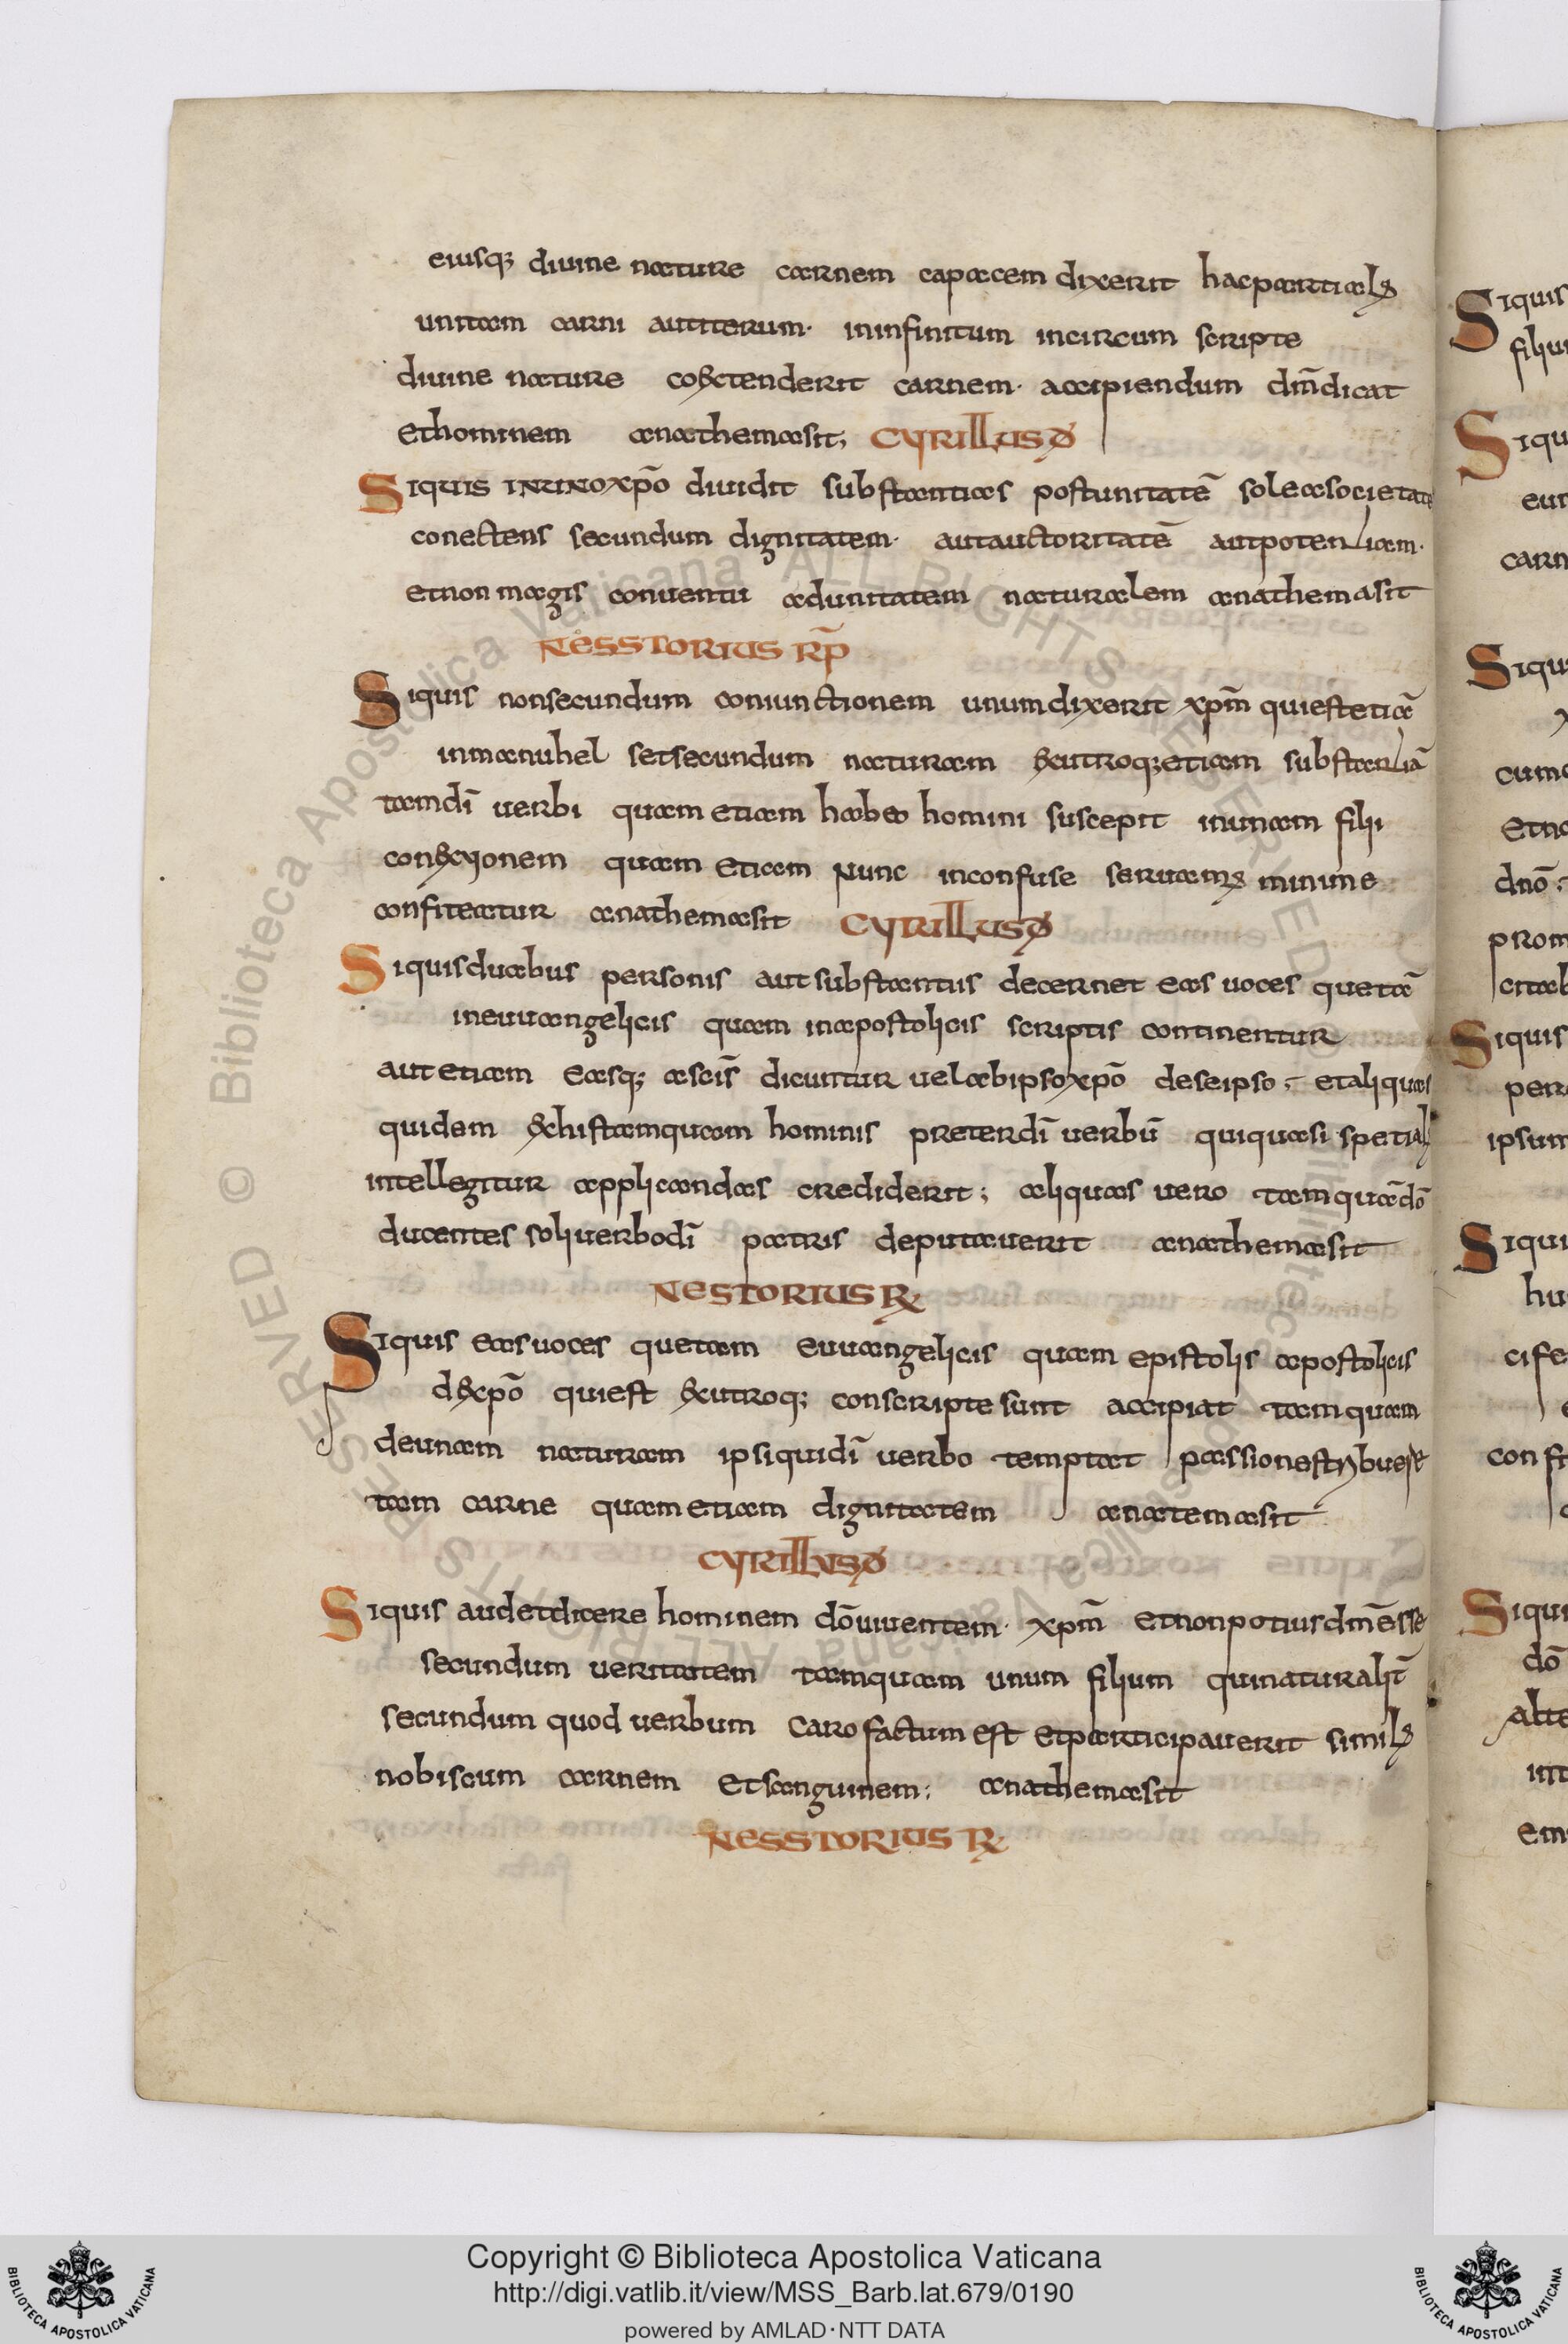 eiusq; diuine nature carnem capacem dixerit hac partial;
unitam carni aut iterum· in infinitum incircum scripte
diuine nature coextenderit carnem· accipiendum dm̄ dicat
et hominem anathema sit; CYRILLUS
Siquis IN UNO xpō diuidit substantias post unitatē sola societate
conectens secundum dignitatem· aut auctoritatē aut potentiam·
et non magis conuentu ad unitatem naturalem anathema sit
NESSTORIUS Rp̄
Siquis non secundum coniunctionem unum dixerit xpm̄ qui est etiā
inmanuhel set secundum naturam ex utroq; etiam substantiā
tam dī uerbi quam etiam habeo homini suscepit in unam filii
conexionem quam etiam Nunc inconfuse seruam; minime
confiteatur anathema sit CYRILLUS
Siquis duabus personis aut substantiis decernet eas uoces que tā
in euuangelicis quam in apostolicis scriptis continentur
aut etiam easq; a scīs dicuntur uel ab ipso xpō de se ipso; et aliquas
quidem exhistamquam hominis preter dī uerbū qui quasi spetial
intellegitur applicandas crediderit; aliquas uero tamquā dō
ducentes soli uerbo dī patris deputauerit anathema sit
NESTORIUS R
Siquis eas uoces que tam euuangelicis quam epistolis apostolicis
de xpō qui est ex utroq; conscripte sunt accipiat tamquam
de unam naturam ipsi qui dī uerbo temptat passiones trybuere
tam carne quam etiam dignitatem anatema sit
CYRILLUS
Siquis audet dicere hominem dō uiuentem· xpm̄ et non potius dm̄ esse
secundum ueritatem tamquam unum filium qui naturalit̄
secundum quod uerbum Caro factum est et participauerit simil;
nobiscum carnem et sanguinem; anathema sit
NESSTORIUS R
Siquis
filiu
Siqu
eun
carn
Siqu
cum
etno
dnō;
prom
Siquis
per
ipsum
Siqui
hu
cife
con fr
Siqui
dō
alte
int
em
© Biblioteca Apostolica Vaticana ALL RIGHTS RESERVED
Copyright © Biblioteca Apostolica Vaticana
http://digi.vatlib.it/view/MSS_Barb.lat.679/0190
powered by AMLAD·NTT DATA
BIBLIOTECA APOSTOLICA VATICANA
BIBLIOTECA APOSTOLICA VATICANA